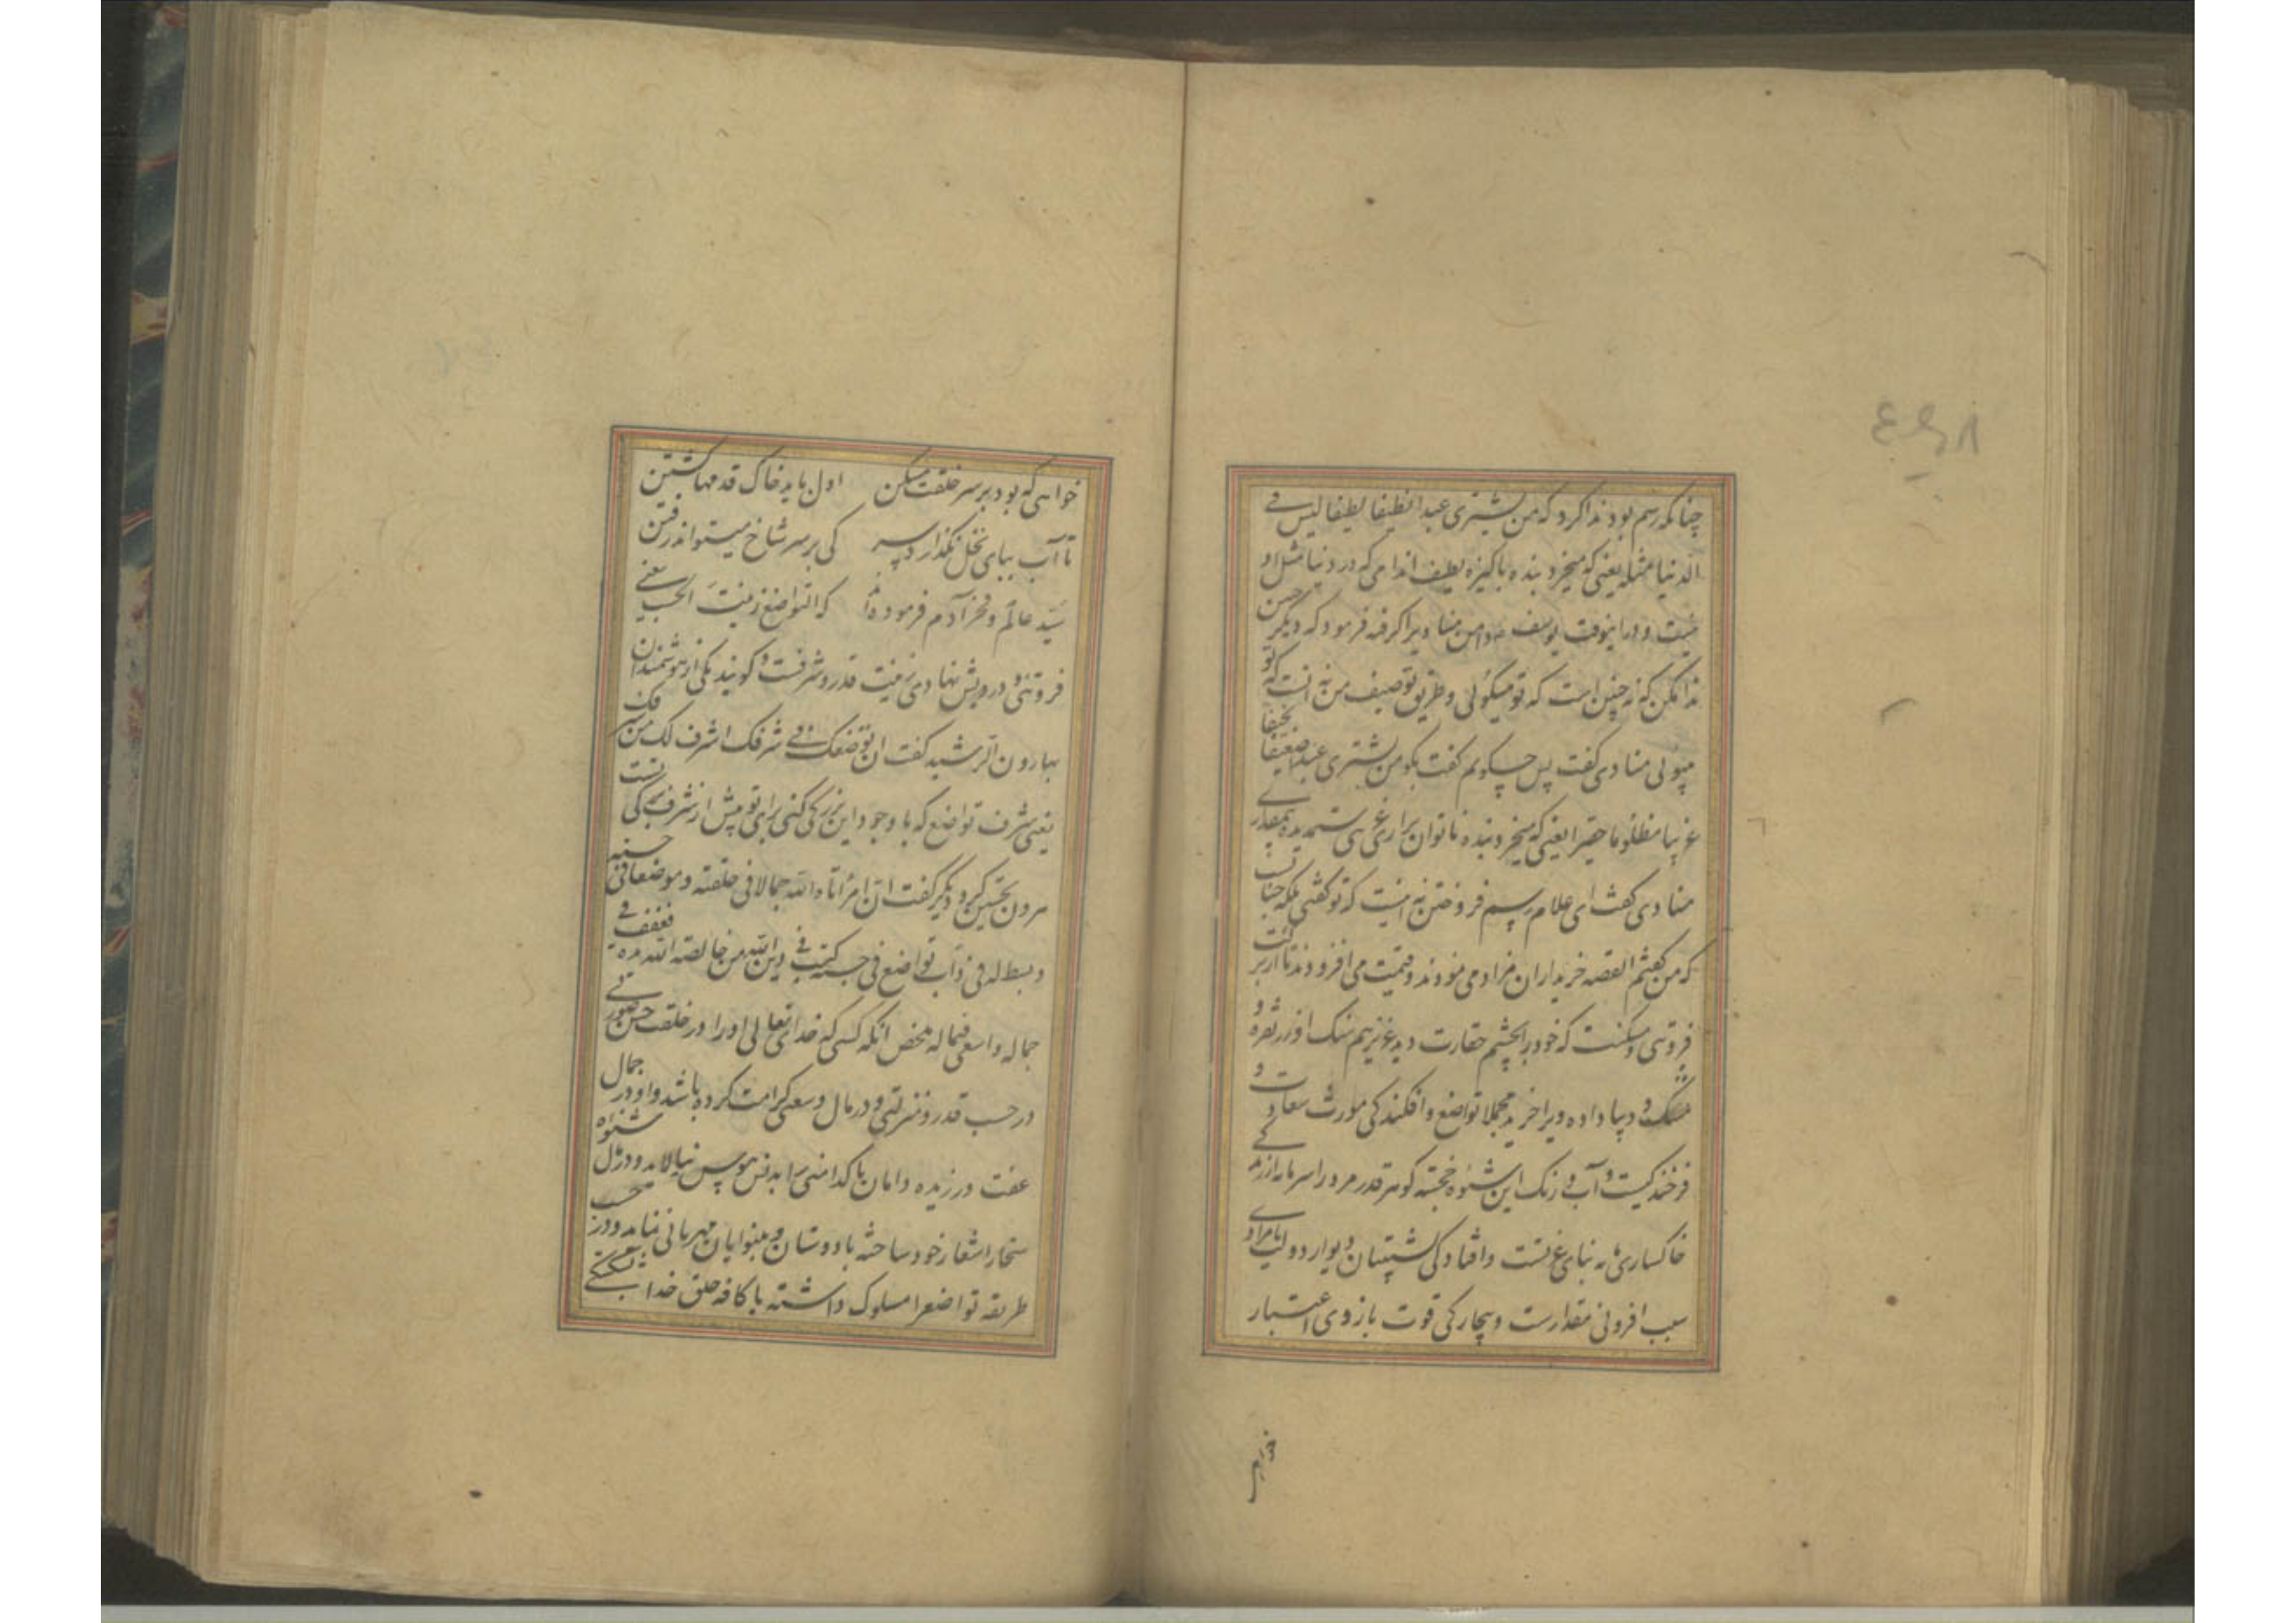 چنانکه رسم بود ندا کرد که من یشتری عبدا نظیفا لطیفا لیس فی
الدنیا مثله یعنی که میخرد بنده پاکیزه لطیف اندامی که در دنیا مثل او
نیست و در اینوقت یوسف دامن منادیرا گرفته فرمود که دیگر چنین
ندا مکن که نه چنین است که تو میگوئی و طریق توصیف من نه آنست که تو
میپوئی منادی گفت پس چگویم گفت بگو من یشتری عبدا ضعیفا نحیفا
غریبا مظلوما حقیرا یعنی که میخرد بنده ناتوان زار غریبی ستمدیده بمقداری
منادی گفت ای غلام رسم فروختن نه اینست که تو گفتی بلکه چنانست
که من گفتم القصه خریداران مزاد می نمودند و قیمت می افزودند تا از برکت
فروتنی و مسکنت که خود را بچشم حقارت دید عزیز هم سنگ او زر و نقره و
مشک و دیبا داده ویرا خرید مجملا تواضع و افکندگی مورث سعادت و
فرخندگیست و آب و رنگ این شیوه خجسته گوهر قدر مرد را سرمایه ارزندگی
خاکساری مایه بنای عزتست و افتادگی پشتیبان دیوار دولت نامرادی
سبب افزونی مقدارست و بیچارگی قوت بازوی اعتبار
خواهی
خواهی که بود بر سر خلقت مسکن اول باید خاک قدمها گشتن
تا آب بپای نخل نگذارد سر کی بر سر شاخ میتواند رفتن
سید عالم و فخر آدم فرموده که التواضع زینت الحسب یعنی
فروتنی و درویش نهادی زینت قدر و شرفست و گویند یکی از هوشمندان
بهارون الرشید گفت ان تواضعک فی شرفک اشرف لک من شرفک
یعنی شرف تواضع که با وجود این بزرگی کنی برای تو پیش از شرف بزرگی تست
هرون تحسین کرد دیگر گفت ان امرأ اتاه الله جمالا فی خلقته و موضعا فی حسبه
و بسط له فی ذات تواضع فی حسبه کتب فی دیوان الله من خالصة الله فعفف فی
جماله و اسی فی ماله ملخص آنکه کسی که خدای تعالی او را در خلقت حسن صورتی
در حسب قدر و منزلتی و در مال وسعتی کرامت کرده باشد و او در جمال
عفت ورزیده دامان پاکدامنی را بدنس هوس نیالاید و در مال شیوه
سخا را شعار خود ساخته با دوستان و بینوایان مهربانی نماید و در حسب
طریقه تواضعرا مسلوک داشته با کافه خلق خدا بشکستگی